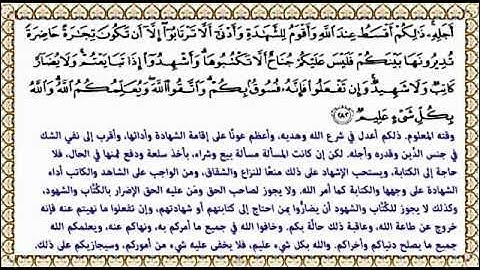 أَجَلِهِۦۚ ذَٰلِكُمۡ أَقۡسَطُ عِندَ ٱللَّهِ وَأَقۡوَمُ لِلشَّهَٰدَةِ وَأَدۡنَىٰٓ أَلَّا تَرۡتَابُوٓاْ إِلَّآ أَن تَكُونَ تِجَٰرَةً حَاضِرَةٗ
تُدِيرُونَهَا بَيۡنَكُمۡ فَلَيۡسَ عَلَيۡكُمۡ جُنَاحٌ أَلَّا تَكۡتُبُوهَاۗ وَأَشۡهِدُوٓاْ إِذَا تَبَايَعۡتُمۡۚ وَلَا يُضَآرَّ
كَاتِبٞ وَلَا شَهِيدٞۚ وَإِن تَفۡعَلُواْ فَإِنَّهُۥ فُسُوقُۢ بِكُمۡۗ وَٱتَّقُواْ ٱللَّهَۖ وَيُعَلِّمُكُمُ ٱللَّهُۗ وَٱللَّهُ
بِكُلِّ شَيۡءٍ عَلِيمٞ ٢٨٢
وقته المعلوم. ذلكم أعدل في شرع الله وهديه، وأعظم عونًا على إقامة الشهادة وأدائها، وأقرب إلى نفي الشك
في جنس الدَّين وقدره وأجله. لكن إن كانت المسألة مسألة بيع وشراء، بأخذ سلعة ودفع ثمنها في الحال، فلا
حاجة إلى الكتابة، ويستحب الإشهاد على ذلك منعًا للنزاع والشقاق، ومن الواجب على الشاهد والكاتب أداء
الشهادة على وجهها والكتابة كما أمر الله. ولا يجوز لصاحب الحق ومَن عليه الحق الإضرار بالكُتَّاب والشهود،
وكذلك لا يجوز للكُتَّاب والشهود أن يضارُّوا بمن احتاج إلى كتابتهم أو شهادتهم، وإن تفعلوا ما نهيتم عنه فإنه
خروج عن طاعة الله، وعاقبة ذلك حالَّة بكم. وخافوا الله في جميع ما أمركم به، ونهاكم عنه، ويعلمكم الله
جميع ما يصلح دنياكم وأخراكم. والله بكل شيء عليم، فلا يخفى عليه شيء من أموركم، وسيجازيكم على ذلك.